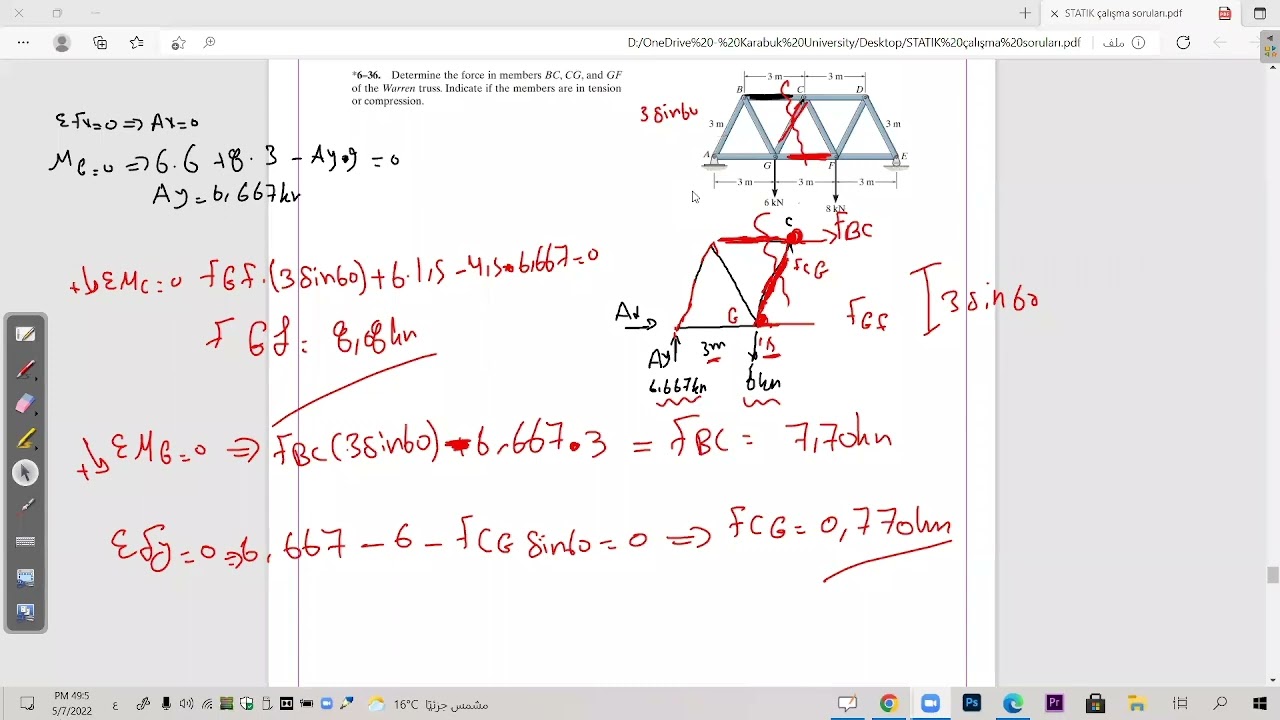 STATIK çalışma soruları.pdf
D:/OneDrive%20-%20Karabuk%20University/Desktop/STATIK%20çalışma%20soruları.pdf
ملف
*6–36. Determine the force in members BC, CG, and GF
of the Warren truss. Indicate if the members are in tension
or compression.
3 m 3 m
B C D
3 sin60
3 m 3 m
A G F E
3 m 3 m 3 m
6 kN 8 kN
Σfx=0 ⇒ Ax=0
ME=0 ⇒ 6.6+8.3 - Ay.9 = 0
Ay=6,667kn
C
FBC
FCG
G
FGf
3 sin60
Ax
Ay 3m 1,5
6.667kn 6kn
+ ΣMC=0 fGf.(3sin60)+6.1,5 -4,5.6,667=0
fGf= 8,08kn
+ ΣMG=0 ⇒ fBC(3sin60)-6,667.3 = FBC= 7,70kn
Σfy=0 ⇒ 6,667-6-fCG sin60=0 ⇒ fCG=0,770kn
PM 49:5
5/7/2022
ع
16°C مشمس جزئيًا